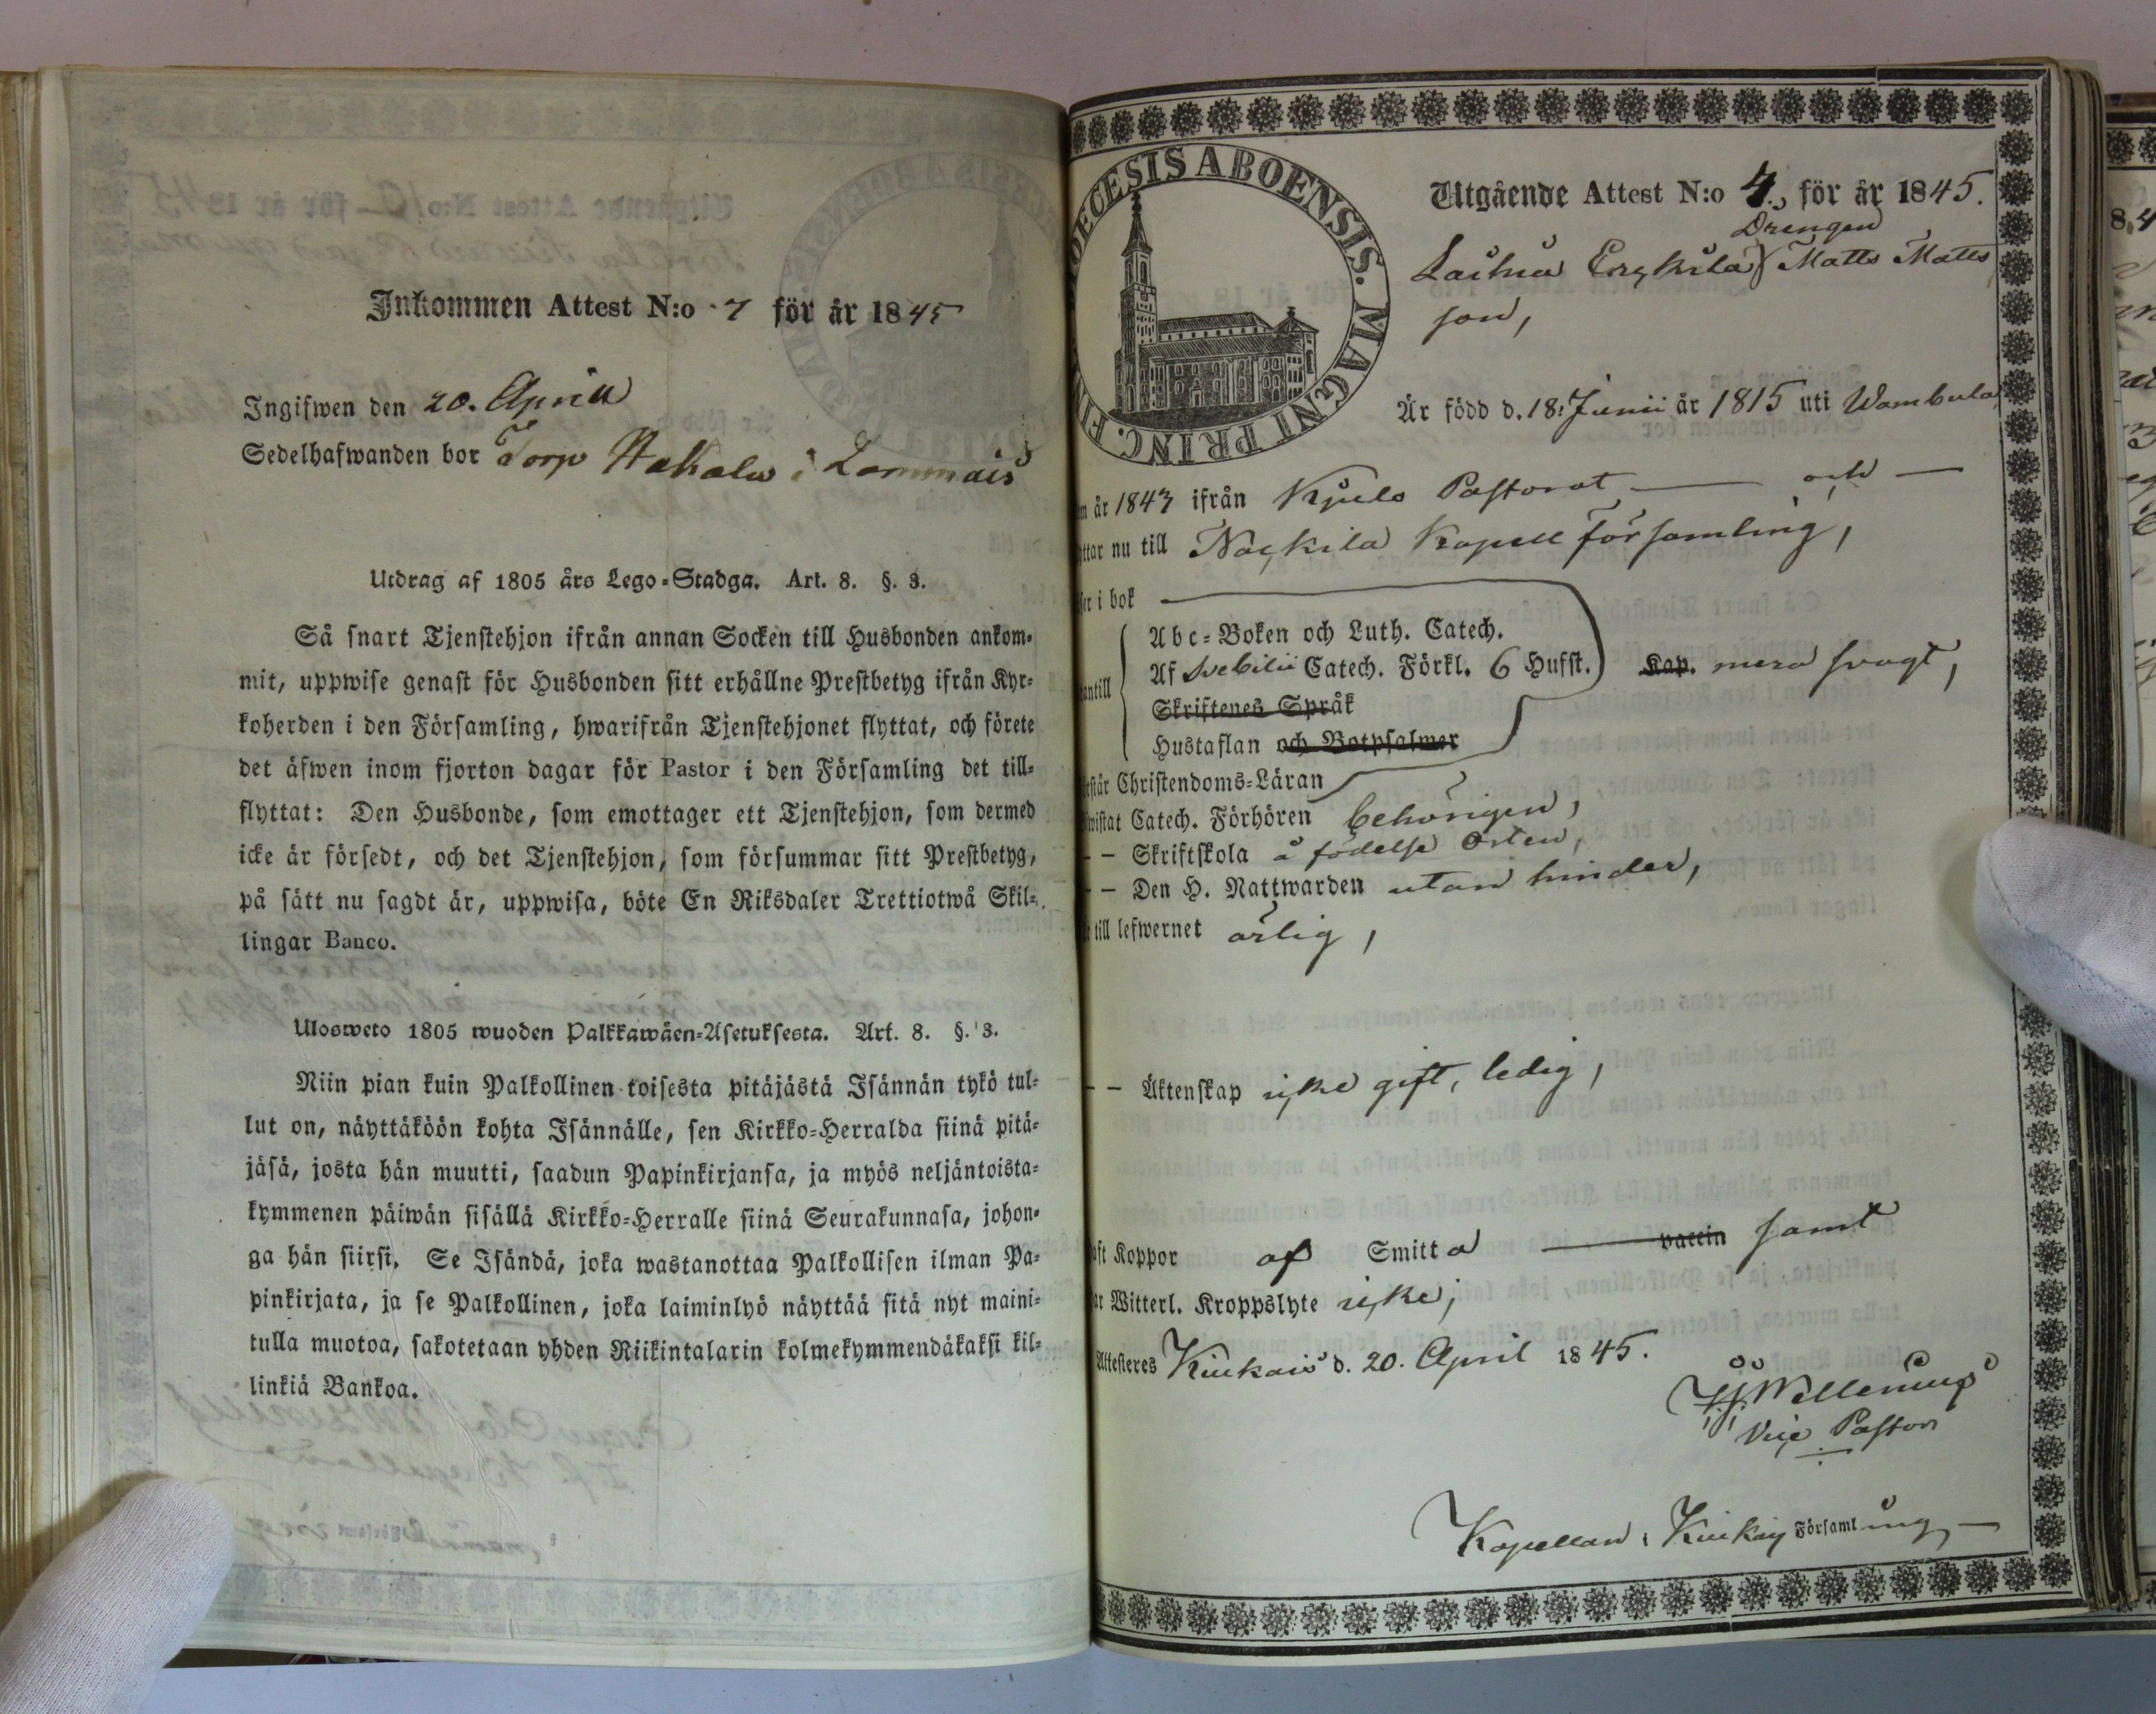 Inkommen Attest N:o 7 för år 1845
Ingifwen den 20. April
Sedelhafwanden bor Torp i Lammais
Utdrag af 1805 års Lego-Stadga. Art. 8. §. 3.
Så snart Tjenstehjon ifrån annan Socken till Husbonden ankom-
mit, uppwise genast för Husbonden sitt erhållne Prestbetyg ifrån Kyr-
koherden i den Församling, hwarifrån Tjenstehjonet flyttat, och förete
det äfwen inom fjorton dagar för Pastor i den Församling det till-
flyttat: Den Husbonde, som emottager ett Tjenstehjon, som dermed
icke är försedt, och det Tjenstehjon, som försummar sitt Prestbetyg,
på sätt nu sagdt är, uppwisa, böte En Riksdaler Trettiotwå Skil-
lingar Banco.
Ulosweto 1805 wuoden Palkkawäen-Asetuksesta. Art. 8. §. 3.
Niin pian kuin Palkollinen toisesta pitäjästä Isännän tykö tul-
lut on, näyttäköön kohta Isännälle, sen Kirkko-Herralda siinä pitä-
jäsä, josta hän muutti, saadun Papinkirjansa, ja myös neljäntoista-
kymmenen päiwän sisällä Kirkko-Herralle siinä Seurakunnasa, johon-
ga hän siirsi. Se Isändä, joka wastanottaa Palkollisen ilman Pa-
pinkirjata, ja se Palkollinen, joka laiminlyö näyttää sitä nyt maini-
tulla muotoa, sakotetaan yhden Riikintalarin kolmekymmendäkaksi kil-
linkiä Bankoa.
ECESIS ABOENSIS. MAGNI PRINC. FIN
Utgående Attest N:o 4, för år 1845.
Drengen
Laihia Erkkila Matts Matts
son,
Är född d. 18: Junii år 1815 uti Wambula
m år 1843 ifrån Kjulo Pastorat, — och —
ttar nu till Nackila Kapell församling,
ser i bok
antill
Abc-Boken och Luth. Catech.
Af Svebilii Catech. Förkl. 6 Hufst. Kap. mera svagt,
Skriftenes Språk
Hustaflan och Botpsalmer
rstår Christendoms-Läran
wistat Catech. Förhören behörigen,
— Skriftskola å födelse Orten,
— Den H. Nattwarden utan hinder,
till lefwernet ärlig,
— Äktenskap icke gift, ledig,
aft Koppor af Smitta — vaccin samt
ar Witterl. Kroppslyte icke;
Attesteres Kiukais d. 20. April 1845.
Wellenius
Vice Pastor
Kapellan i Kiukais Församling —